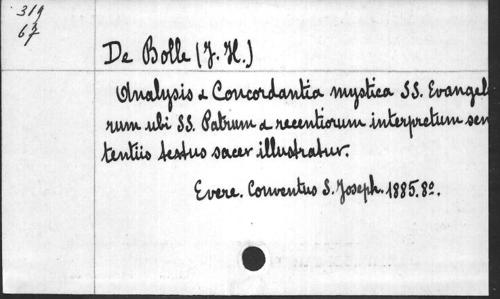 319
67
De Bolle (J. H.)
Analysis & Concordantia mystica SS. Evangel
rum ubi SS. Patrum & recentiorum interpretum sen
tentiis textus sacer illustratur.
Evere. Conventus S. Joseph. 1885. 8º.